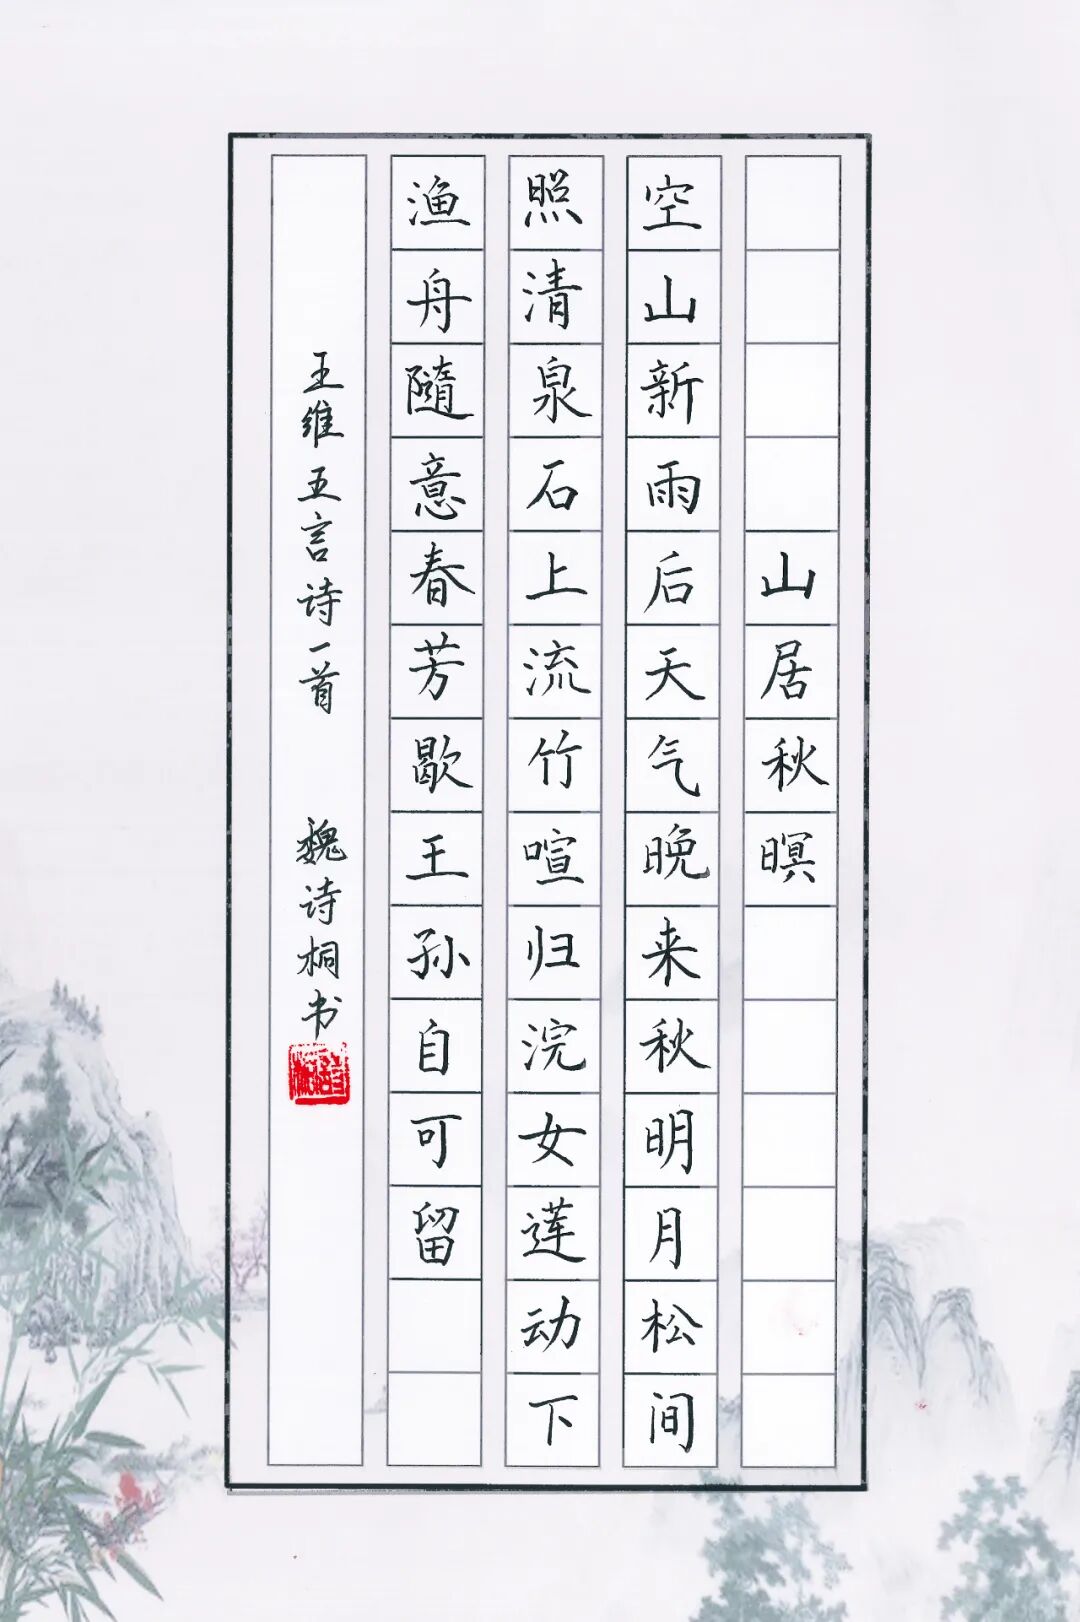 山居秋暝
空山新雨后天气晚来秋明月松间
照清泉石上流竹喧归浣女莲动下
渔舟隨意春芳歇王孙自可留
王维五言诗一首 魏诗桐书